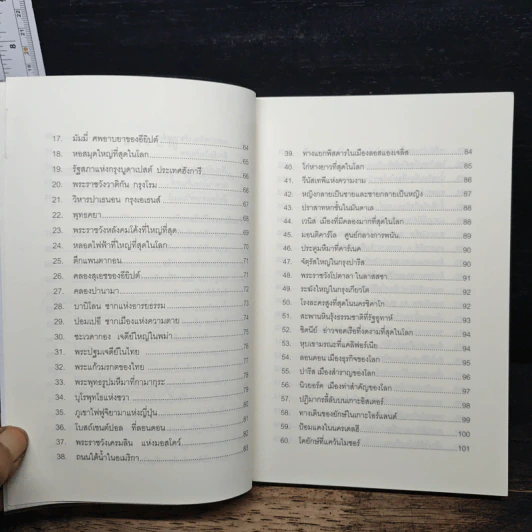 17. มัมมี่ ศพอาบยาของอียิปต์ 64
18. หอสมุดใหญ่ที่สุดในโลก 65
19. รัฐสภาแห่งกรุงบูดาเปสต์ ประเทศฮังการี 66
20. พระราชวังวาติกัน กรุงโรม 67
21. วิหารปาเธนอน กรุงเอเธนส์ 68
22. พุทธคยา 69
23. พระราชวังหลังคมโค้งที่ใหญ่ที่สุด 69
24. หลอดไฟฟ้าที่ใหญ่ที่สุดในโลก 70
25. ตึกแพนตากอน 71
26. คลองสุเอซของอียิปต์ 71
27. คลองปานามา 72
28. บาบิโลน ซากแห่งอารยธรรม 73
29. ปอมเปอี ซากเมืองแห่งความตาย 74
30. ชเวดากอง เจดีย์ใหญ่ในพม่า 74
31. พระปฐมเจดีย์ในไทย 75
32. พระแก้วมรกตของไทย 76
33. พระพุทธรูปหิมาที่กามากุระ 78
34. บุโรพุทโธแห่งชวา 79
35. ภูเขาไฟฟูจิยามาแห่งญี่ปุ่น
36. โบสถ์เซนต์ปอล ที่ลอนดอน
37. พระราชวังเครมลิน แห่งมอสโคว์
38. ถนนใต้น้ำในอเมริกา
39. ทางแยกพิสดารในเมืองลอสแองเจลิส 84
40. ไก่หางยาวที่สุดในโลก 85
41. วีนัสเทพีแห่งความงาม 86
42. หญิงกลายเป็นชายและชายกลายเป็นหญิง
43. ปราสาทหาชั้นในมันดาเล
44. เวนิส เมืองที่มีคลองมากที่สุดในโลก 88
45. มอนติคาร์โล ศูนย์กลางการพนัน 88
46. ประตูหิมาที่คาร์เนค 88
47. จัตุรัสใหญ่ในกรุงปารีส
48. พระราชวังโปตาลา ในลาสสซา
49. ระฆังใหญ่ในกรุงเกียวโต 91
50. โรงละครสูงที่สุดในนครชิคาโก
51. สะพานหินรุ้งธรรมชาติที่รัฐยูทาห์
52. ซิดนีย์ อ่าวจอดเรือที่งดงามที่สุดในโลก 94
53. หุบเขามรณะที่แคลิฟอร์เนีย 94
54. ลอนดอน เมืองธุรกิจของโลก 94
55. ปารีส เมืองสำราญของโลก
56. นิวยอร์ค เมืองท่าสำคัญของโลก
57. ปฏิมากรลี้ลับบนเกาะอีสเตอร์
58. ทางเดินของยักษ์ในเกาะไอร์แลนด์
59. ป้อมแดงในนครเดลฮี 100
60. โดยักษ์ที่แควันไมซอร์ 101